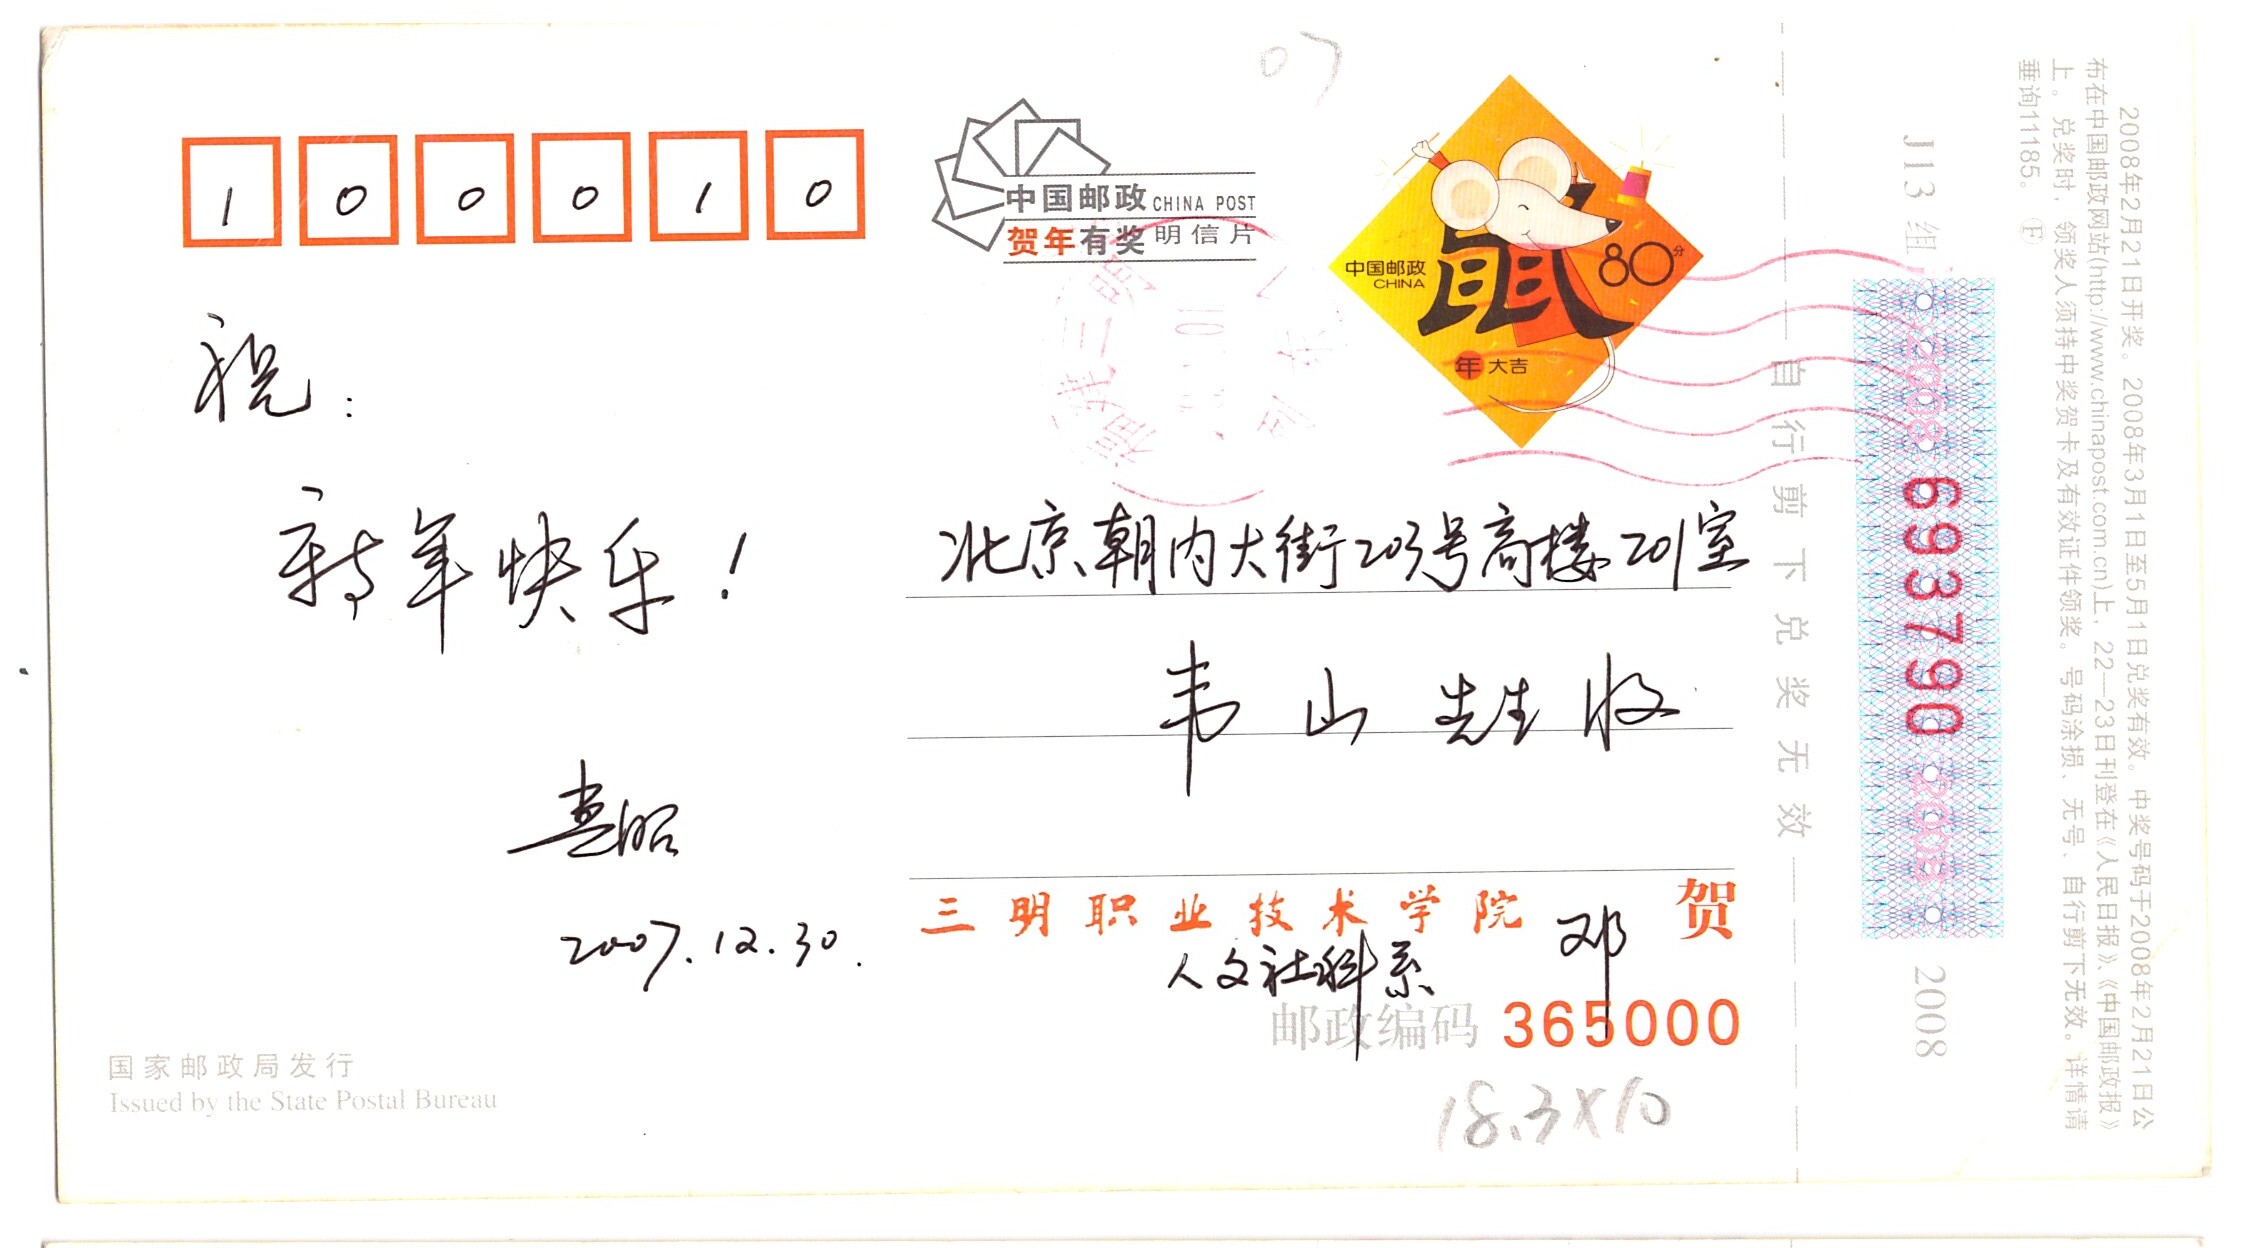 07
100010
中国邮政 CHINA POST
贺年有奖明信片
中国邮政
CHINA
鼠
80分
年大吉
福建三明
祝：
新年快乐！
2007.12.30.
北京朝内大街203号高楼201室
韦山 先生 收
三明职业技术学院 邓 贺
人文社科系
邮政编码 365000
18.3×10
国家邮政局发行
Issued by the State Postal Bureau
自行剪下兑奖无效
J13组
2008 693790 2008
2008
2008年2月21日开奖。2008年3月1日至5月1日兑奖有效。中奖号码于2008年2月21日公
布在中国邮政网站(http://www.chinapost.com.cn)上，22—23日刊登在《人民日报》、《中国邮政报》
上。兑奖时，领奖人须持中奖贺卡及有效证件领奖。号码涂损、无号、自行剪下无效。详情请
垂询11185。 Ⓕ